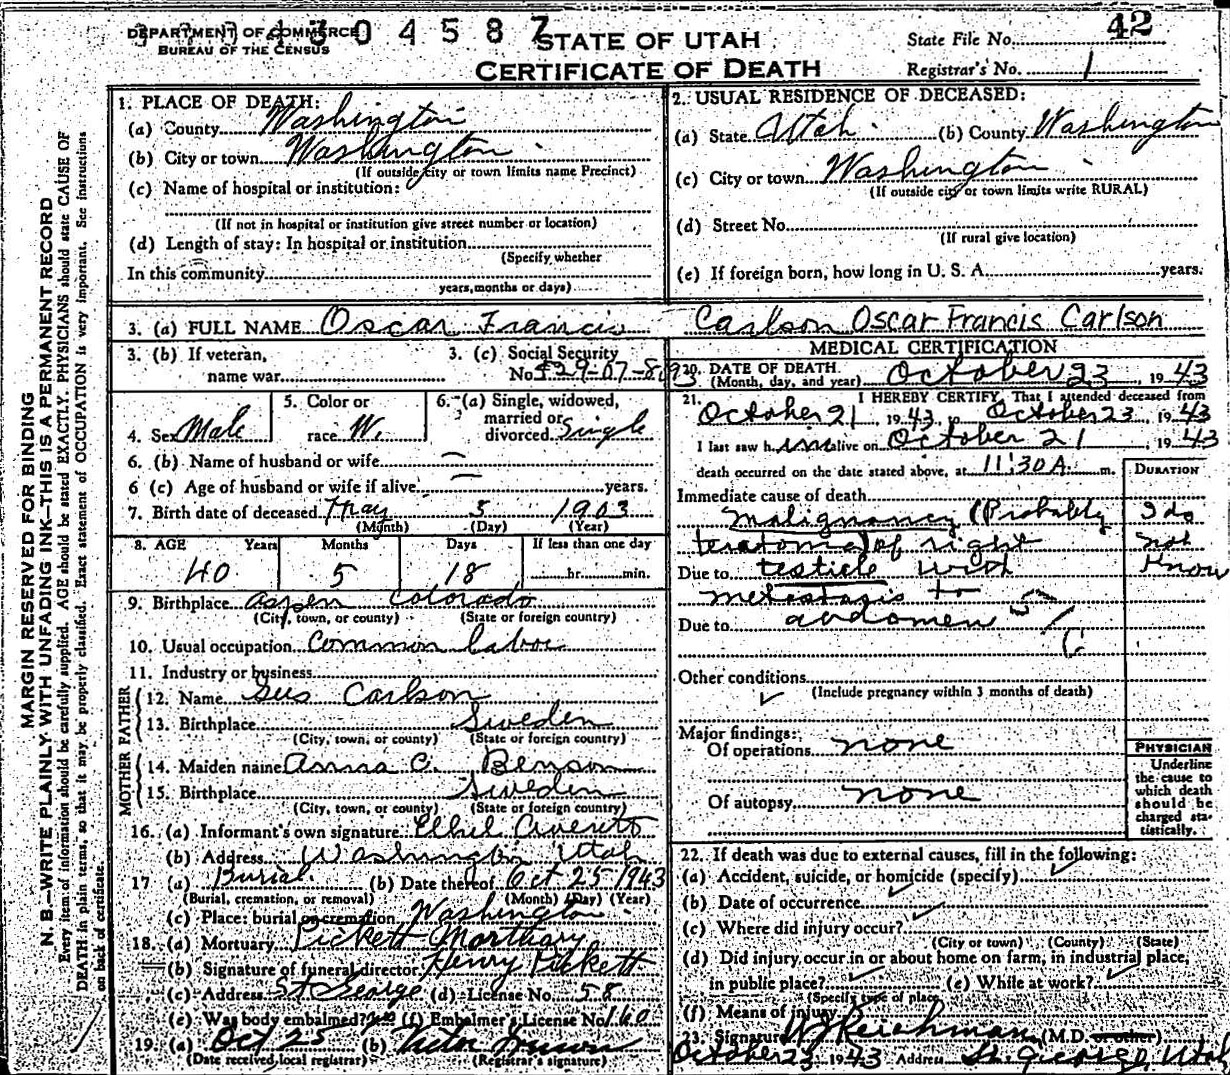 DEPARTMENT OF COMMERCE
BUREAU OF THE CENSUS
304587
STATE OF UTAH
CERTIFICATE OF DEATH
State File No. 42
Registrar's No. 1
MARGIN RESERVED FOR BINDING
N. B.—WRITE PLAINLY WITH UNFADING INK—THIS IS A PERMANENT RECORD
Every item of information should be carefully supplied. AGE should be stated EXACTLY. PHYSICIANS should state CAUSE OF
DEATH in plain terms, so that it may be properly classified. Exact statement of OCCUPATION is very important. See instructions
on back of certificate.
1. PLACE OF DEATH:
(a) County Washington
(b) City or town Washington
(If outside city or town limits name Precinct)
(c) Name of hospital or institution:
(If not in hospital or institution give street number or location)
(d) Length of stay: In hospital or institution
(Specify whether
In this community
years, months or days)
2. USUAL RESIDENCE OF DECEASED:
(a) State Utah (b) County Washington
(c) City or town Washington
(If outside city or town limits write RURAL)
(d) Street No.
(If rural give location)
(e) If foreign born, how long in U. S. A. years.
3. (a) FULL NAME Oscar Francis Carlson Oscar Francis Carlson
3. (b) If veteran,
name war
3. (c) Social Security
No. 529-07-8693
4. Sex Male
5. Color or
race W.
6. (a) Single, widowed,
married or
divorced Single
6. (b) Name of husband or wife —
6 (c) Age of husband or wife if alive — years.
7. Birth date of deceased May 5 1903
(Month) (Day) (Year)
8. AGE Years Months Days If less than one day
40 5 18 hr. min.
9. Birthplace Aspen Colorado
(City, town, or county) (State or foreign country)
10. Usual occupation Common labor
11. Industry or business
FATHER
12. Name Gus Carlson
13. Birthplace Sweden
(City, town, or county) (State or foreign country)
MOTHER
14. Maiden name Anna C. Benson
15. Birthplace Sweden
(City, town, or county) (State or foreign country)
16. (a) Informant's own signature Ethel Averett
(b) Address Washington Utah
17 (a) Burial (b) Date thereof Oct 25 1943
(Burial, cremation, or removal) (Month) (Day) (Year)
(c) Place: burial or cremation Washington
18. (a) Mortuary Pickett Mortuary
(b) Signature of funeral director Henry Pickett
(c) Address St George (d) License No. 58
(e) Was body embalmed? yes (f) Embalmer's License No. 160
19. (a) Oct 25 (b)
(Date received local registrar) (Registrar's signature)
MEDICAL CERTIFICATION
20. DATE OF DEATH.
(Month, day, and year) October 23, 1943
21. I HEREBY CERTIFY, That I attended deceased from
October 21, 1943, to October 23, 1943
I last saw h im alive on October 21, 1943
death occurred on the date stated above, at 11:30 A. m.
DURATION
Immediate cause of death
Malignancy (Probably
teratoma) of right
Due to testicle with
metastasis to
Due to abdomen
I do
not
know
Other conditions
(Include pregnancy within 3 months of death)
Major findings:
Of operations none
Of autopsy none
PHYSICIAN
Underline
the cause to
which death
should be
charged sta-
tistically.
22. If death was due to external causes, fill in the following:
(a) Accident, suicide, or homicide (specify)
(b) Date of occurrence
(c) Where did injury occur?
(City or town) (County) (State)
(d) Did injury occur in or about home on farm, in industrial place,
in public place? (e) While at work?
(Specify type of place
(f) Means of injury
23. Signature W J Reichman (M.D. or other)
October 23, 1943 Address St. George, Utah